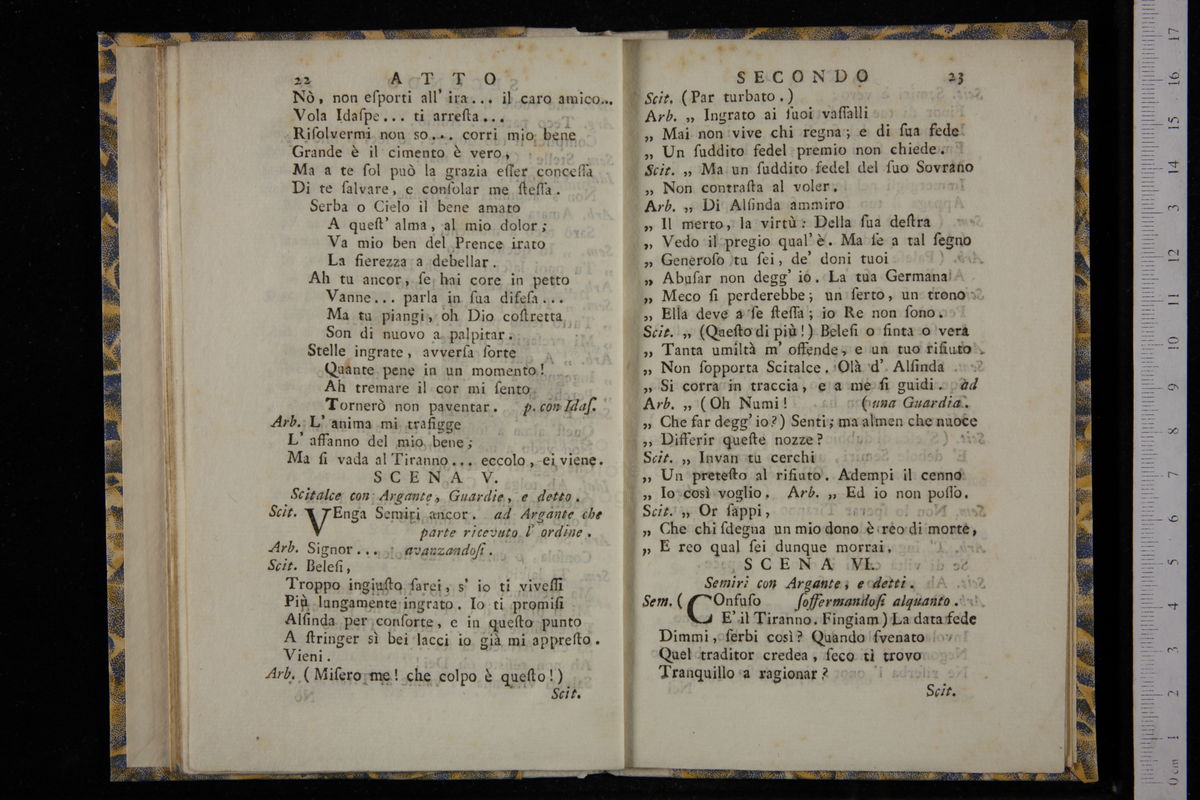 22 ATTO
Nò, non eſporti all' ira... il caro amico...
Vola Idaſpe... ti arreſta...
Riſolvermi non so... corri mio bene
Grande è il cimento è vero,
Ma a te ſol può la grazia eſſer conceſſa
Di te ſalvare, e conſolar me ſteſſa.
Serba o Cielo il bene amato
A queſt' alma, al mio dolor;
Va mio ben del Prence irato
La fierezza a debellar.
Ah tu ancor, ſe hai core in petto
Vanne... parla in ſua difeſa...
Ma tu piangi, oh Dio coſtretta
Son di nuovo a palpitar.
Stelle ingrate, avverſa ſorte
Quante pene in un momento!
Ah tremare il cor mi ſento
Tornerò non paventar. p. con Idaſ.
Arb. L' anima mi trafigge
L' affanno del mio bene;
Ma ſi vada al Tiranno... eccolo, ei viene.
SCENA V.
Scitalce con Argante, Guardie, e detto.
Scit. VEnga Semiri ancor. ad Argante che
parte ricevuto l' ordine.
Arb. Signor... avanzandoſi.
Scit. Beleſi,
Troppo ingiuſto ſarei, s' io ti viveſſi
Più lungamente ingrato. Io ti promiſi
Alſinda per conſorte, e in queſto punto
A ſtringer sì bei lacci io già mi appreſto.
Vieni.
Arb. (Miſero me! che colpo è queſto!)
Scit.
SECONDO 23
Scit. (Par turbato.)
Arb. „ Ingrato ai ſuoi vaſſalli
„ Mai non vive chi regna; e di ſua fede
„ Un ſuddito fedel premio non chiede.
Scit. „ Ma un ſuddito fedel del ſuo Sovrano
„ Non contraſta al voler.
Arb. „ Di Alſinda ammiro
„ Il merto, la virtù: Della ſua deſtra
„ Vedo il pregio qual' è. Ma ſe a tal ſegno
„ Generoſo tu ſei, de' doni tuoi
„ Abuſar non degg' io. La tua Germana
„ Meco ſi perderebbe; un ſerto, un trono
„ Ella deve a ſe ſteſſa; io Re non ſono.
Scit. „ (Queſto di più!) Beleſi o finta o vera
„ Tanta umiltà m' offende, e un tuo rifiuto
„ Non ſopporta Scitalce. Olà d' Alſinda
„ Si corra in traccia, e a me ſi guidi. ad
Arb. „ (Oh Numi! (una Guardia.
„ Che far degg' io?) Senti; ma almen che nuoce
„ Differir queſte nozze?
Scit. „ Invan tu cerchi
„ Un preteſto al rifiuto. Adempi il cenno
„ Io così voglio. Arb. „ Ed io non poſſo.
Scit. „ Or ſappi,
„ Che chi ſdegna un mio dono è reo di morte,
„ E reo qual ſei dunque morrai.
SCENA VI.
Semiri con Argante, e detti.
Sem. (COnfuſo ſoffermandoſi alquanto.
E' il Tiranno. Fingiam) La data fede
Dimmi, ſerbi così? Quando ſvenato
Quel traditor credea, ſeco ti trovo
Tranquillo a ragionar?
Scit.
0 cm 1 2 3 4 5 6 7 8 9 10 11 12 13 14 15 16 17